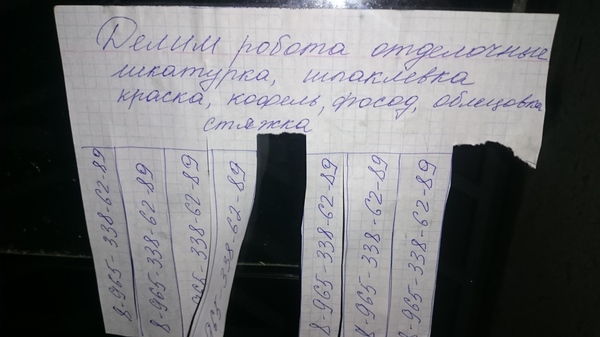 Делим робота отделочные
шкатурка, шпаклевка
краска, кофель, фосод, облецовка
стяжка
8-965-338-62-89
8-965-338-62-89
965-338-62-89
965-338-62-89
8-965-338-62-89
8-965-338-62-89
8-965-338-62-89